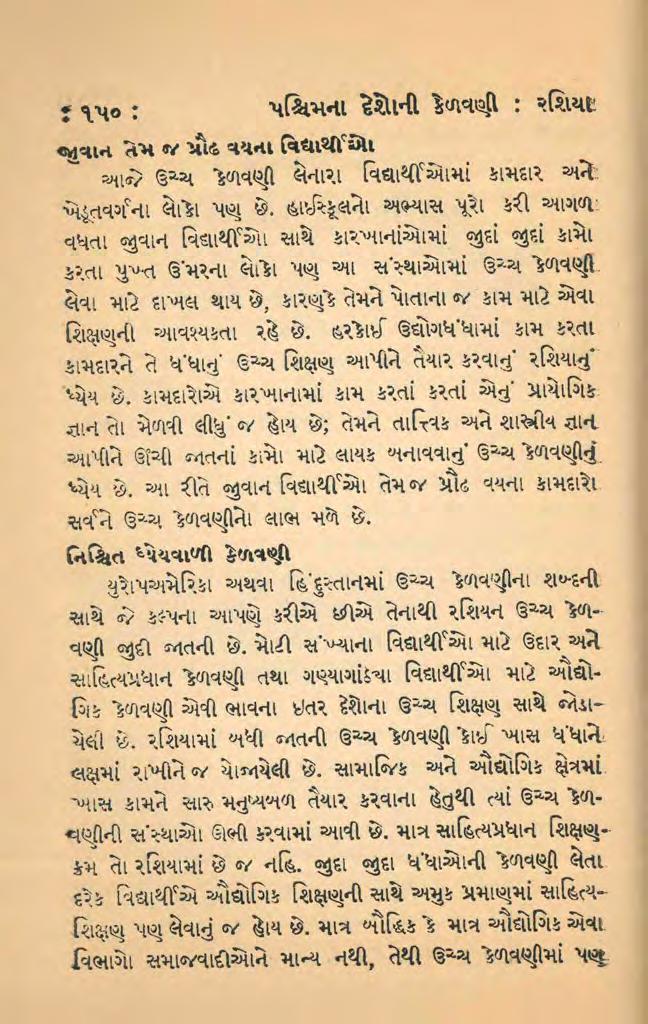 : ૧૫૦ : પશ્ચિમના દેશોની કેળવણી : રશિયા
જીવાન તેમ જ પ્રૌઢ વયના વિદ્યાર્થીઓ
આજે ઉચ્ચ કેળવણી લેનારા વિદ્યાર્થીઓમાં કામદાર અને
ખેડૂતવર્ગના લોકો પણ છે. હાઈસ્કૂલનો અભ્યાસ પૂરો કરી આગળ
વધતા જીવાન વિદ્યાર્થીઓ સાથે કારખાનાંઓમાં જુદાં જુદાં કામો
કરતા પુખ્ત ઉંમરના લોકો પણ આ સંસ્થાઓમાં ઉચ્ચ કેળવણી
લેવા માટે દાખલ થાય છે, કારણકે તેમને પોતાના જ કામ માટે એવા
શિક્ષણની આવશ્યકતા રહે છે. હરકોઈ ઉદ્યોગધંધામાં કામ કરતા
કામદારને તે ધંધાનું ઉચ્ચ શિક્ષણ આપીને તૈયાર કરવાનું રશિયાનું
ધ્યેય છે. કામદારોએ કારખાનામાં કામ કરતાં કરતાં એનું પ્રાયોગિક
જ્ઞાન તો મેળવી લીધું જ હોય છે; તેમને તાત્ત્વિક અને શાસ્ત્રીય જ્ઞાન
આપીને ઊંચી જાતનાં કામો માટે લાયક બનાવવાનું ઉચ્ચ કેળવણીનું
ધ્યેય છે. આ રીતે જીવાન વિદ્યાર્થીઓ તેમજ પ્રૌઢ વયના કામદારો
સર્વને ઉચ્ચ કેળવણીનો લાભ મળે છે.
નિશ્ચિત ધ્યેયવાળી કેળવણી
યુરોપઅમેરિકા અથવા હિંદુસ્તાનમાં ઉચ્ચ કેળવણીના શબ્દની
સાથે જે કલ્પના આપણે કરીએ છીએ તેનાથી રશિયન ઉચ્ચ કેળ-
વણી જુદી જાતની છે. મોટી સંખ્યાના વિદ્યાર્થીઓ માટે ઉદાર અને
સાહિત્યપ્રધાન કેળવણી તથા ગણ્યાગાંઠ્યા વિદ્યાર્થીઓ માટે ઔદ્યો-
ગિક કેળવણી એવી ભાવના ઇતર દેશોના ઉચ્ચ શિક્ષણ સાથે જોડા-
યેલી છે. રશિયામાં બધી જાતની ઉચ્ચ કેળવણી કોઈ ખાસ ધંધાને
લક્ષમાં રાખીને જ યોજાયેલી છે. સામાજિક અને ઔદ્યોગિક ક્ષેત્રમાં
ખાસ કામને સારુ મનુષ્યબળ તૈયાર કરવાના હેતુથી ત્યાં ઉચ્ચ કેળ-
વણીની સંસ્થાઓ ઊભી કરવામાં આવી છે. માત્ર સાહિત્યપ્રધાન શિક્ષણ-
ક્રમ તો રશિયામાં છે જ નહિ. જુદા જુદા ધંધાઓની કેળવણી લેતા
દરેક વિદ્યાર્થીએ ઔદ્યોગિક શિક્ષણની સાથે અમુક પ્રમાણમાં સાહિત્ય-
શિક્ષણ પણ લેવાનું જ હોય છે. માત્ર બૌદ્ધિક કે માત્ર ઔદ્યોગિક એવા
વિભાગો સમાજવાદીઓને માન્ય નથી, તેથી ઉચ્ચ કેળવણીમાં પણ